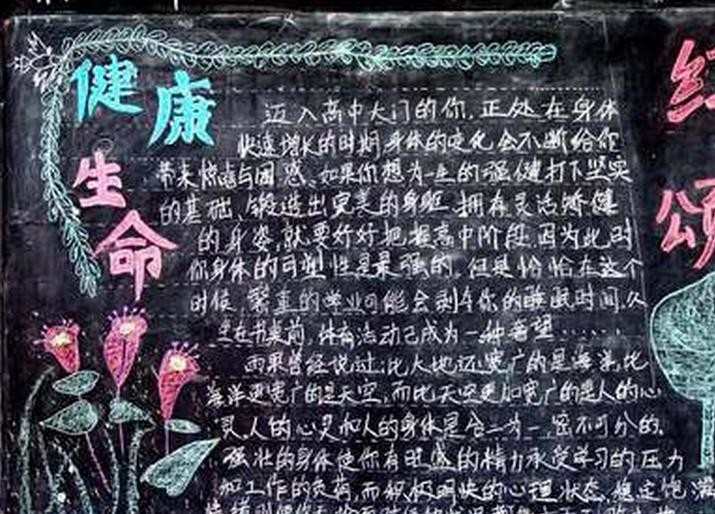 健康
生命
迈入高中大门的你,正处在身体
快速增长的时期身体的变化会不断给你
带来惊喜与困惑、如果你想为一生的强健打下坚实
的基础、锻造出完美的身躯拥有灵活矫健
的身姿,就要好好把握高中阶段,因为此时
你身体的可塑性是最强的,但是恰恰在这个
时候 繁重的学业可能会剥夺你的睡眠时间,久
坐在书桌前,体育活动已成为一种奢望······
雨果曾经说过:比大地还宽广的是海洋,比
海洋更宽广的是天空,而比天空更加宽广的是人的心
灵,人的心灵和人的身体是合二为一,密不可分的,
强壮的身体使你有旺盛的精力承受学习的压力
和工作的负荷,而积极明快的心理状态,稳定饱满
红
颂